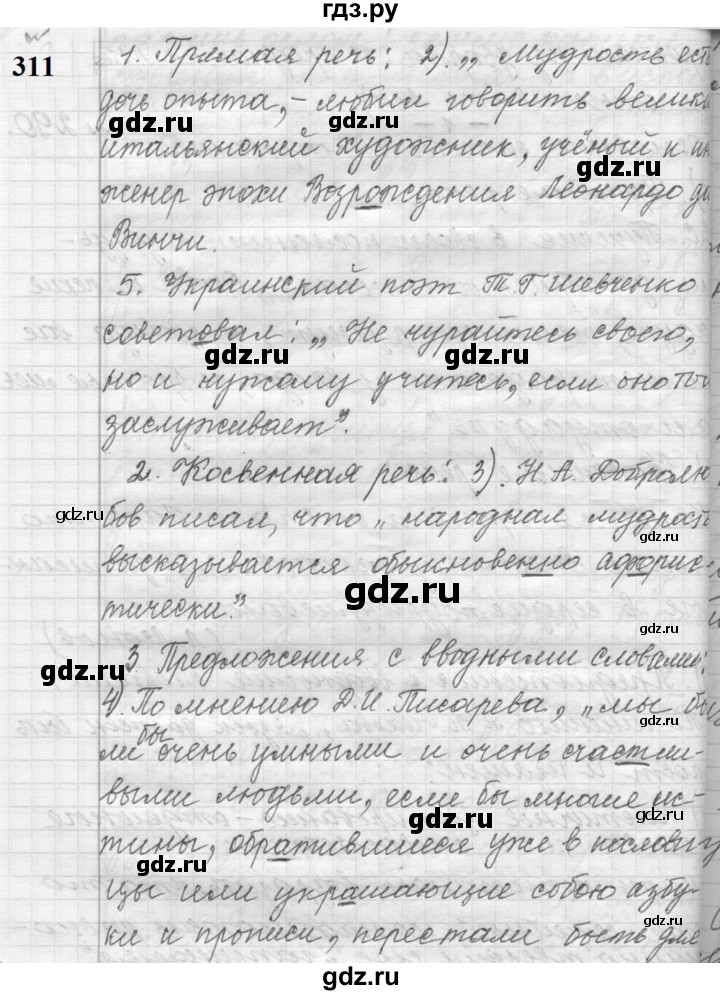 гдз.ру
311
1. Прямая речь: 2). „ Мудрость ест
дочь опыта, – любил говорить велики
gdz.ru gdz.ru
итальянский художник, учёный и ин
женер эпохи Возрождения Леонардо да
gdz.ru
Винчи.
5. Украинский поэт Т.Г. Шевченко
советовал: „ Не чурайтесь своего,
gdz.ru gdz.ru
но и чужому учитесь, если оно того
заслуживает".
gdz.ru
2. Косвенная речь: 3). Н А. Добролю
gdz.ru gdz.ru
бов писал, что „ народная мудрость
высказывается обыкновенно афорис-
gdz.ru
тически."
3 Предложения с вводными словами:
gdz.ru
4). По мнению Д.И. Писарева, „мы бы
gdz.ru
ли бы очень умными и очень счастли-
выми людьми, если бы многие ис-
gdz.ru
тины, обратившиеся уже в послови
gdz.ru
цы или украшающие собою азбу-
ки и прописи, перестали быть для
gdz.ru
гдз.ру